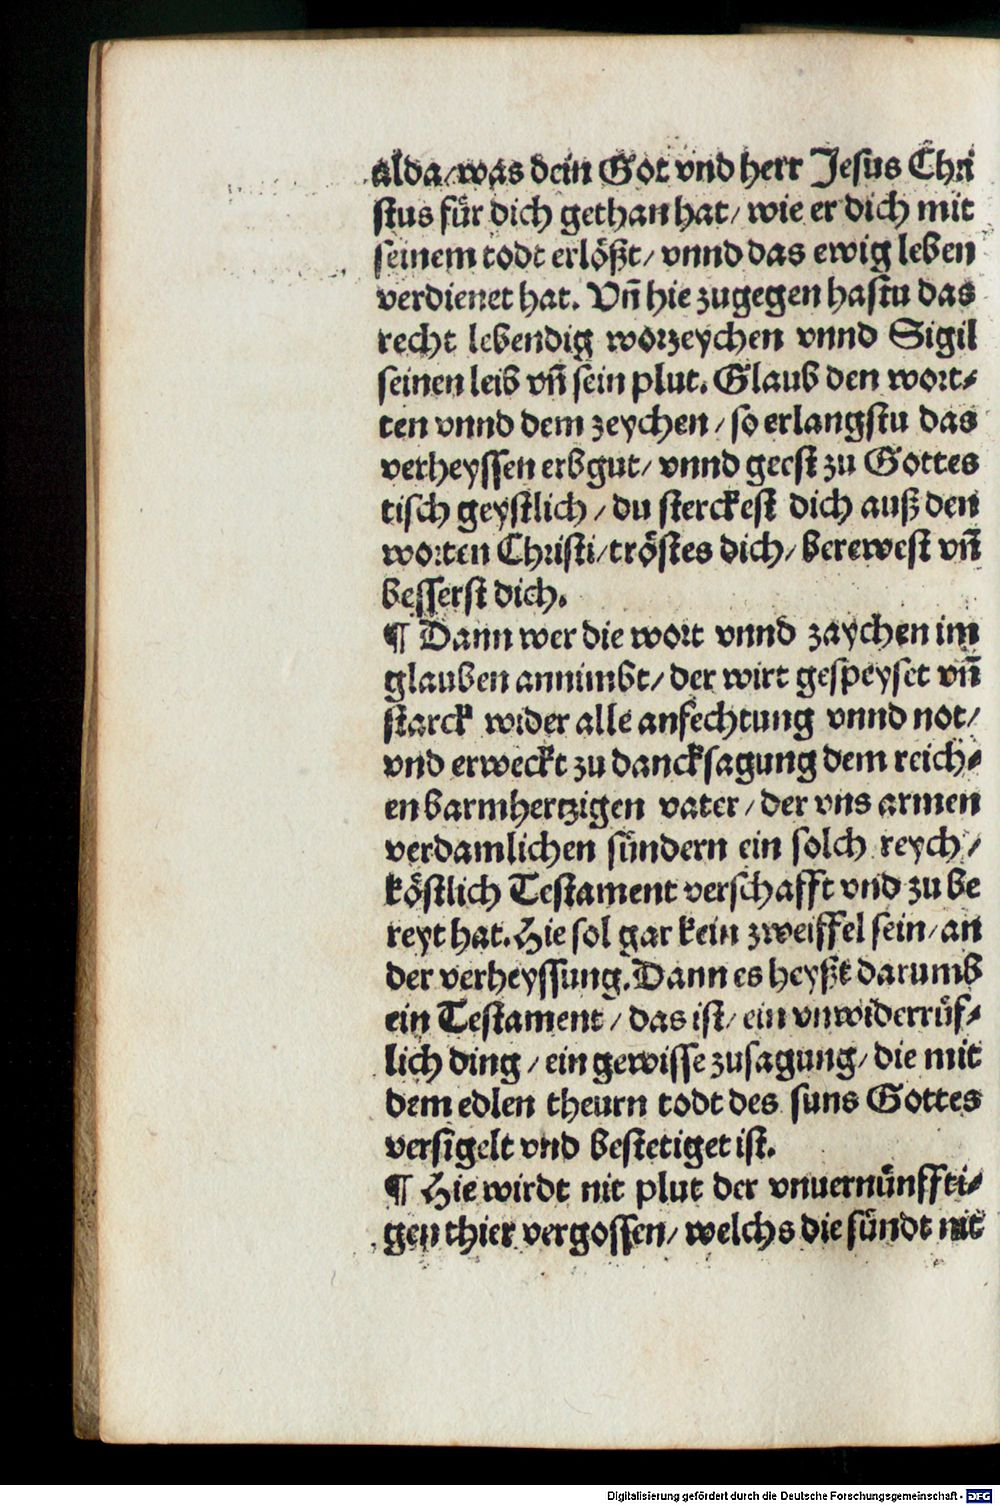 alda/ was dein Got vnd herr Jesus Chri
stus für dich gethan hat/ wie er dich mit
seinem todt erlößt/ vnnd das ewig leben
verdienet hat. Vñ hie zugegen hastu das
recht lebendig worzeychen vnnd Sigil
seinen leib vñ sein plut. Glaub den wort⸗
ten vnnd dem zeychen/ so erlangstu das
verheyssen erbgut/ vnnd geest zu Gottes
tisch geystlich/ du sterckest dich auß den
worten Christi/ tröstes dich/ berewest vñ
besserst dich.
¶ Dann wer die wort vnnd zaychen im
glauben annimbt/ der wirt gespeyset vñ
starck wider alle anfechtung vnnd not/
vnd erweckt zu dancksagung dem reich⸗
en barmhertzigen vater/ der vns armen
verdamlichen sündern ein solch reych/
köstlich Testament verschafft vnd zu be
reyt hat. Hie sol gar kein zweiffel sein/ an
der verheyssung. Dann es heyßt darumb
ein Testament/ das ist/ ein vnwiderrüf⸗
lich ding/ ein gewisse zusagung/ die mit
dem edlen theurn todt des suns Gottes
versigelt vnd bestetiget ist.
¶ Hie wirdt nit plut der vnuernünffti⸗
gen thier vergossen/ welchs die sündt nit
Digitalisierung gefördert durch die Deutsche Forschungsgemeinschaft - DFG